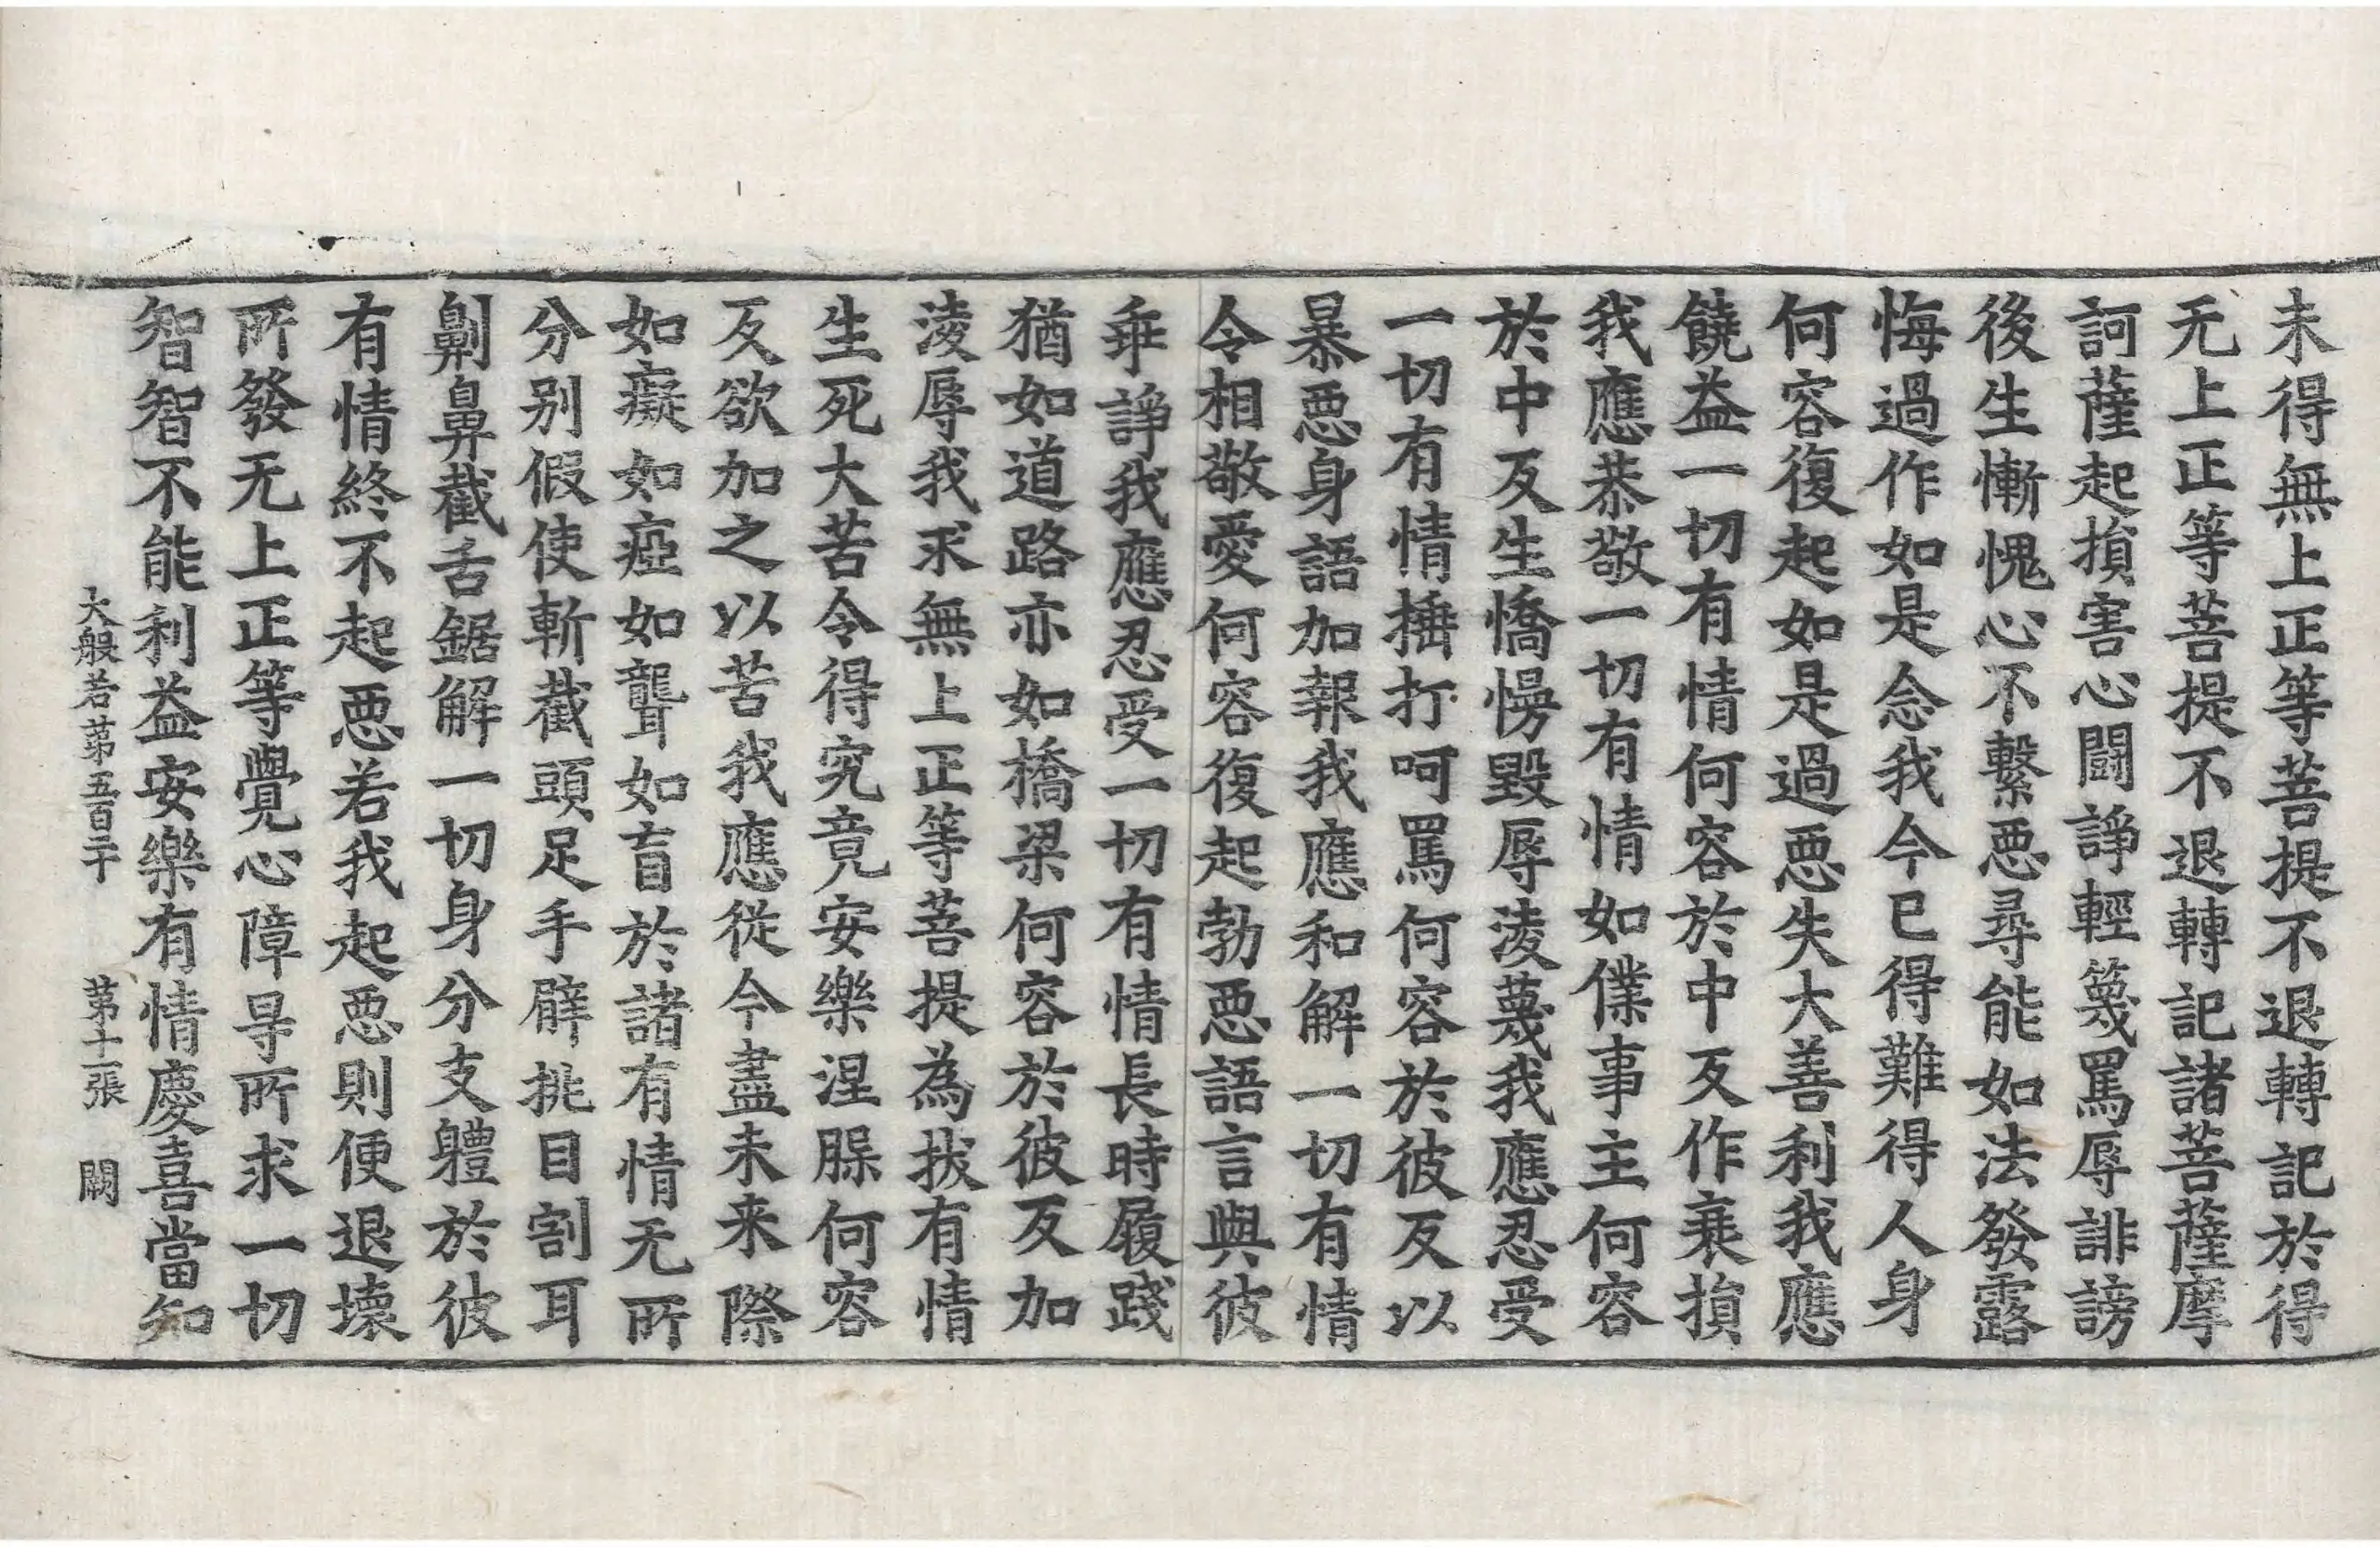 未得無上正等菩提不退轉記於得
无上正等菩提不退轉記諸菩薩摩
訶薩起損害心鬪諍輕篾罵辱誹謗
後生慚愧心不繫惡尋能如法發露
悔過作如是念我今已得難得人身
何容復起如是過惡失大善利我應
饒益一切有情何容於中反作衰損
我應恭敬一切有情如僕事主何容
於中反生憍慢毀辱淩蔑我應忍受
一切有情捶打呵罵何容於彼反以
暴惡身語加報我應和解一切有情
令相敬愛何容復起勃惡語言與彼
乖諍我應忍受一切有情長時履踐
猶如道路亦如橋梁何容於彼反加
淩辱我求無上正等菩提為拔有情
生死大苦令得究竟安樂涅槃何容
反欲加之以苦我應從今盡未来際
如癡如瘂如聾如盲於諸有情无所
分別假使斬截頭足手臂挑目割耳
劓鼻截舌鋸解一切身分支軆於彼
有情終不起惡若我起惡則便退壞
所發无上正等覺心障㝵所求一切
智智不能利益安樂有情慶喜當知
大般若第五百二十 第十一張 闕